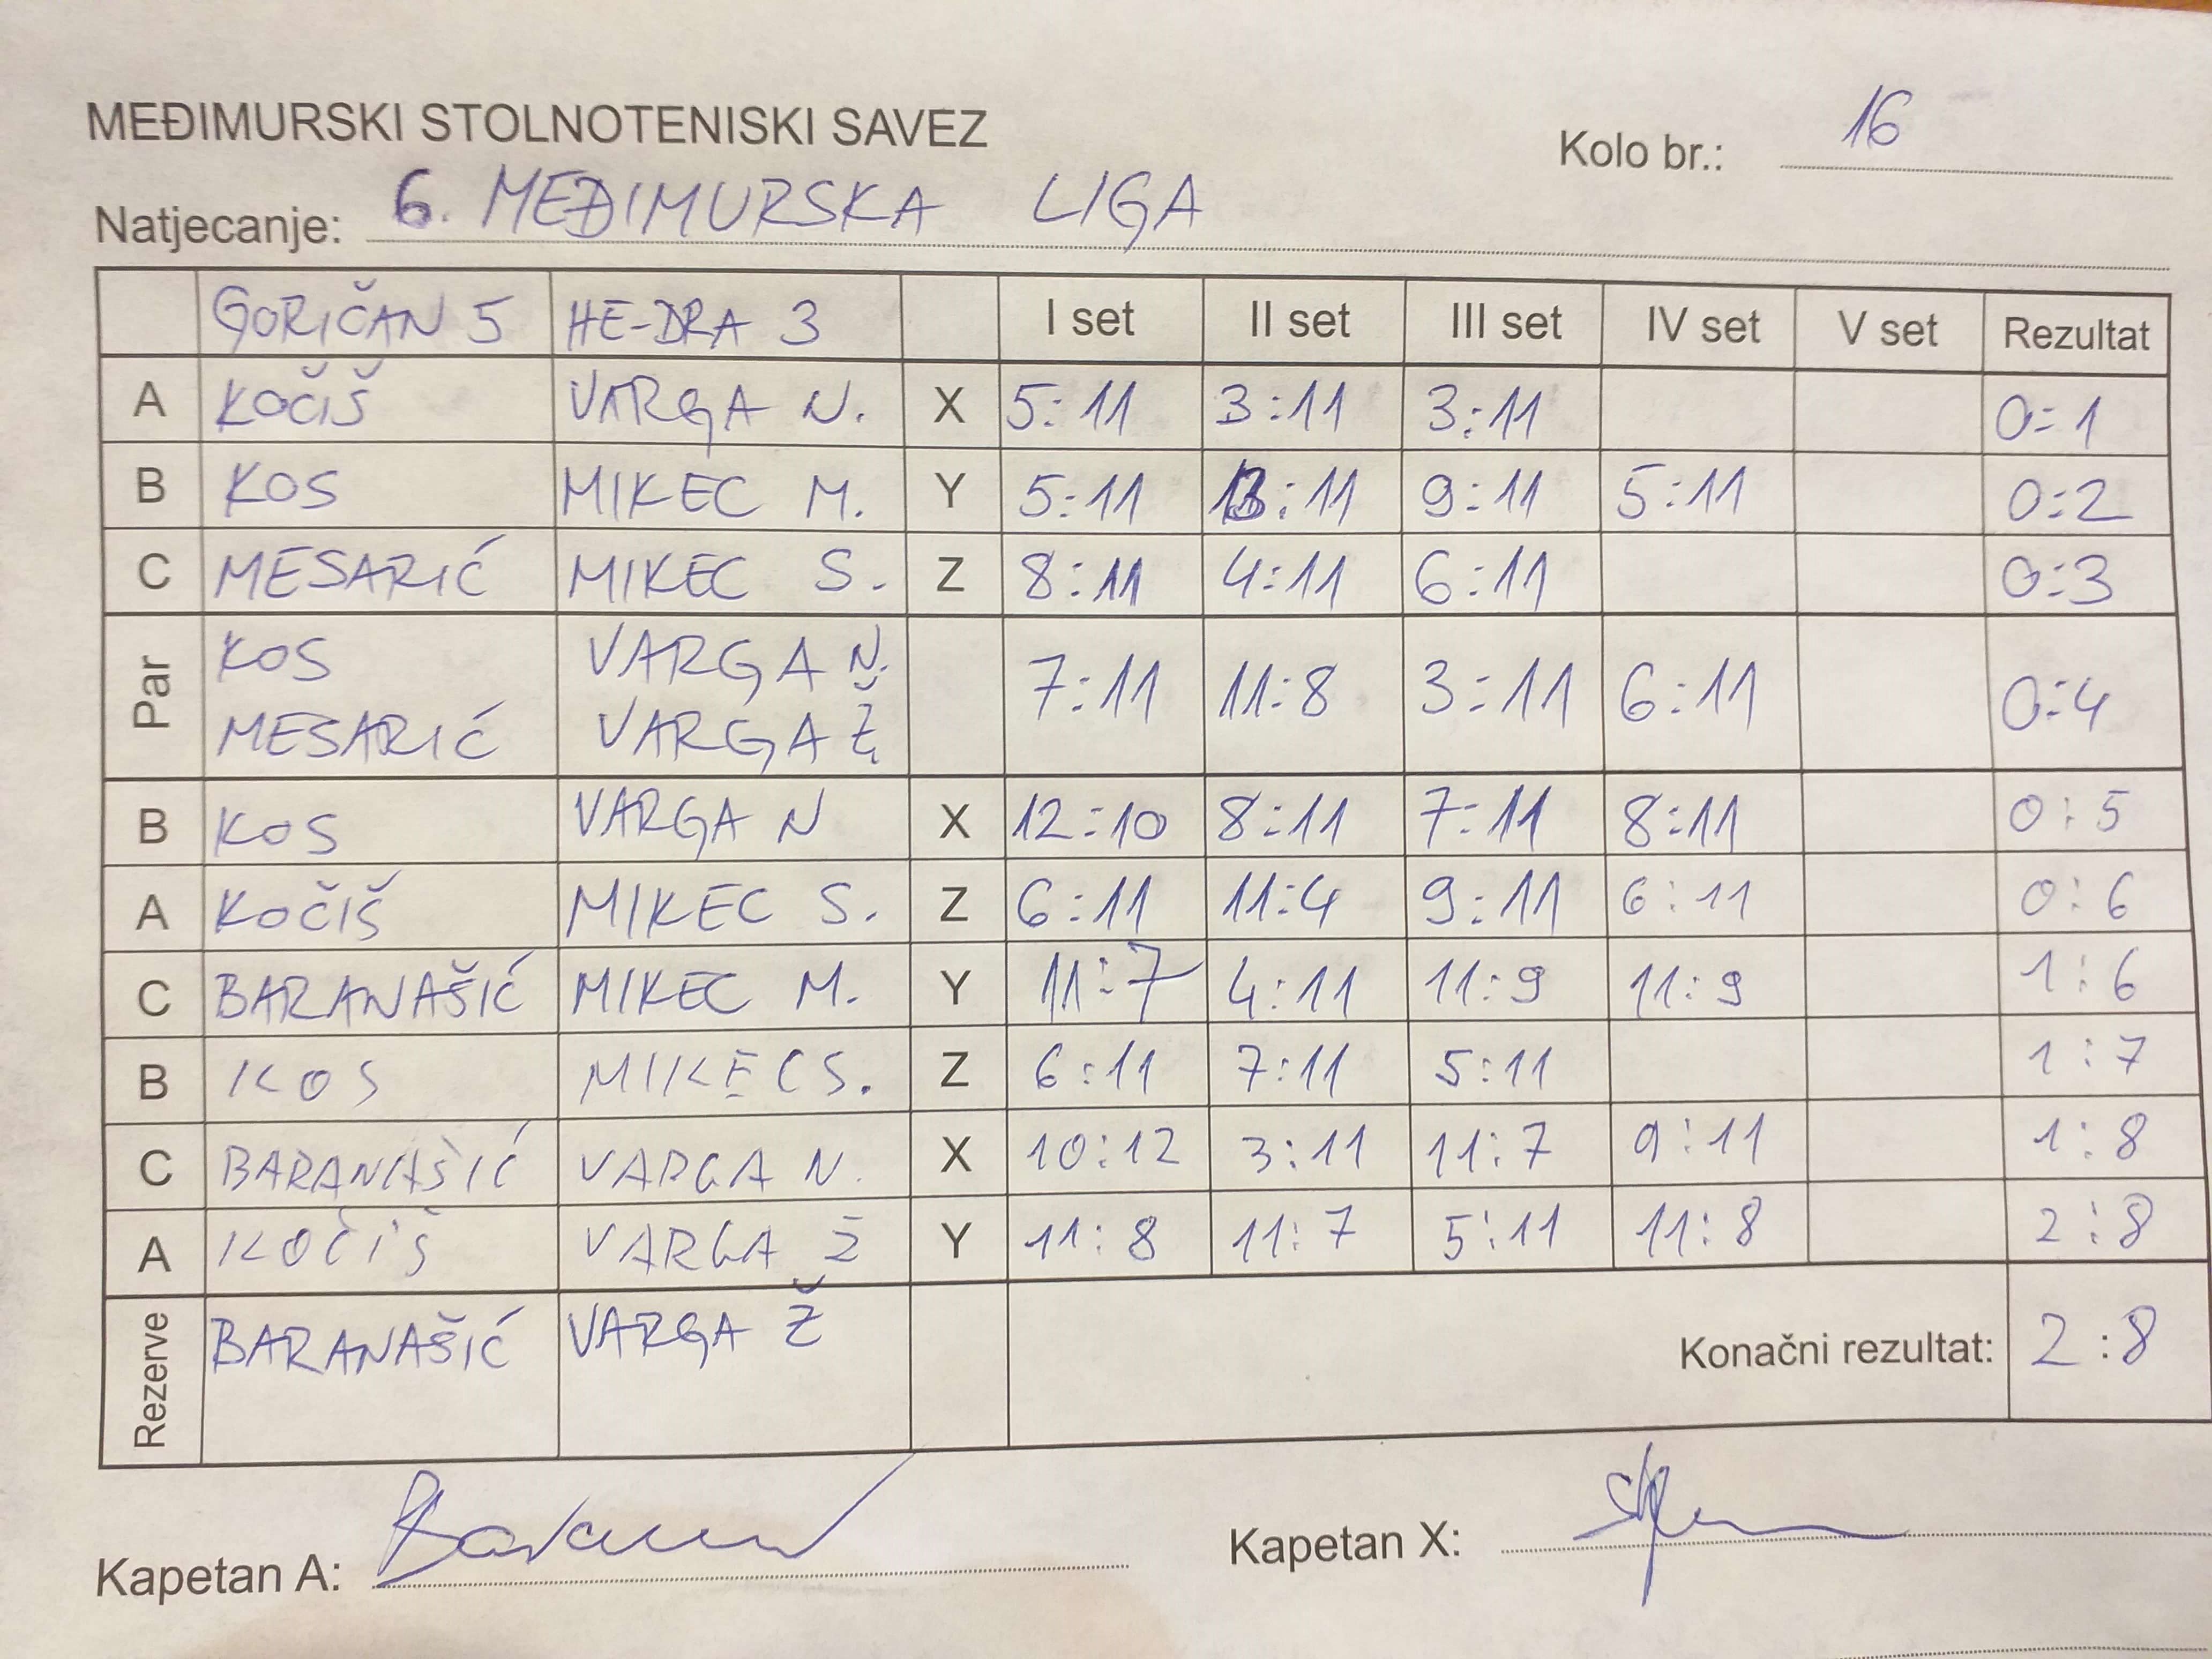 MEĐIMURSKI STOLNOTENISKI SAVEZ
Kolo br.: 16
Natjecanje: 6. MEĐIMURSKA LIGA
GORIČAN 5 HE-DRA 3 I set II set III set IV set V set Rezultat
A KOČIŠ VARGA N. X 5:11 3:11 3:11 0:1
B KOS MIKEC M. Y 5:11 13:11 9:11 5:11 0:2
C MESARIĆ MIKEC S. Z 8:11 4:11 6:11 0:3
Par KOS VARGA N. 7:11 11:8 3:11 6:11 0:4
MESARIĆ VARGA Ž.
B KOS VARGA N X 12:10 8:11 7:11 8:11 0:5
A KOČIŠ MIKEC S. Z 6:11 11:4 9:11 6:11 0:6
C BARANAŠIĆ MIKEC M. Y 11:7 4:11 11:9 11:9 1:6
B KOS MIKEC S. Z 6:11 7:11 5:11 1:7
C BARANAŠIĆ VARGA N. X 10:12 3:11 11:7 9:11 1:8
A KOČIŠ VARGA Ž Y 11:8 11:7 5:11 11:8 2:8
Rezerve BARANAŠIĆ VARGA Ž Konačni rezultat: 2:8
Kapetan A: Kapetan X: